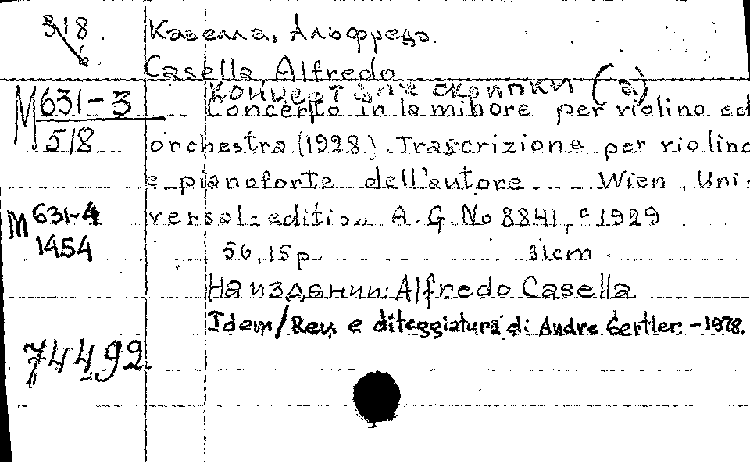 318. Казелла, Альфредо.
6. Casella Alfredo
Концерт для скрипки (a)
М 631-3 Concerto in la minore per violino ed
518 orchestra (1928). Trascrizione per violino
e pianoforte dell'autore Wien, Uni-
М 631-4 versal-edition A. G. No 8841, c 1929
1454 56, 15 p. 31cm
На издании: Alfredo Casella
Idem/Rev. e diteggiatura di Andre Gertler. - 1978.
74492